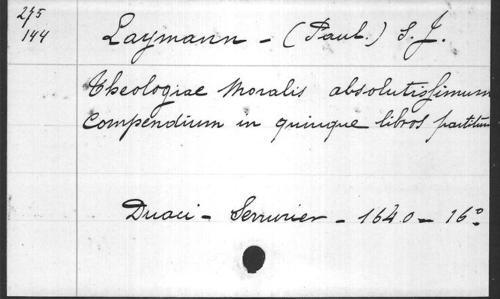 275
144
Laymann - (Paul.) S. J.
Theologiae Moralis absolutissimum
Compendium in quinque libros partitum
Duaci - Serrurier - 1640 - 16º